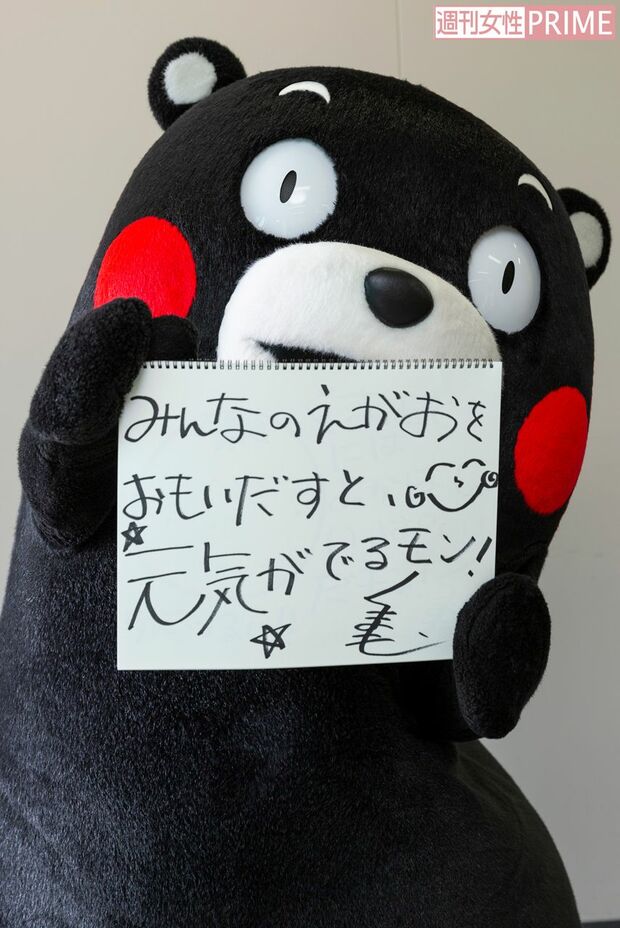 週刊女性PRIME
みんなのえがおを
おもいだすと、
元気がでるモン!